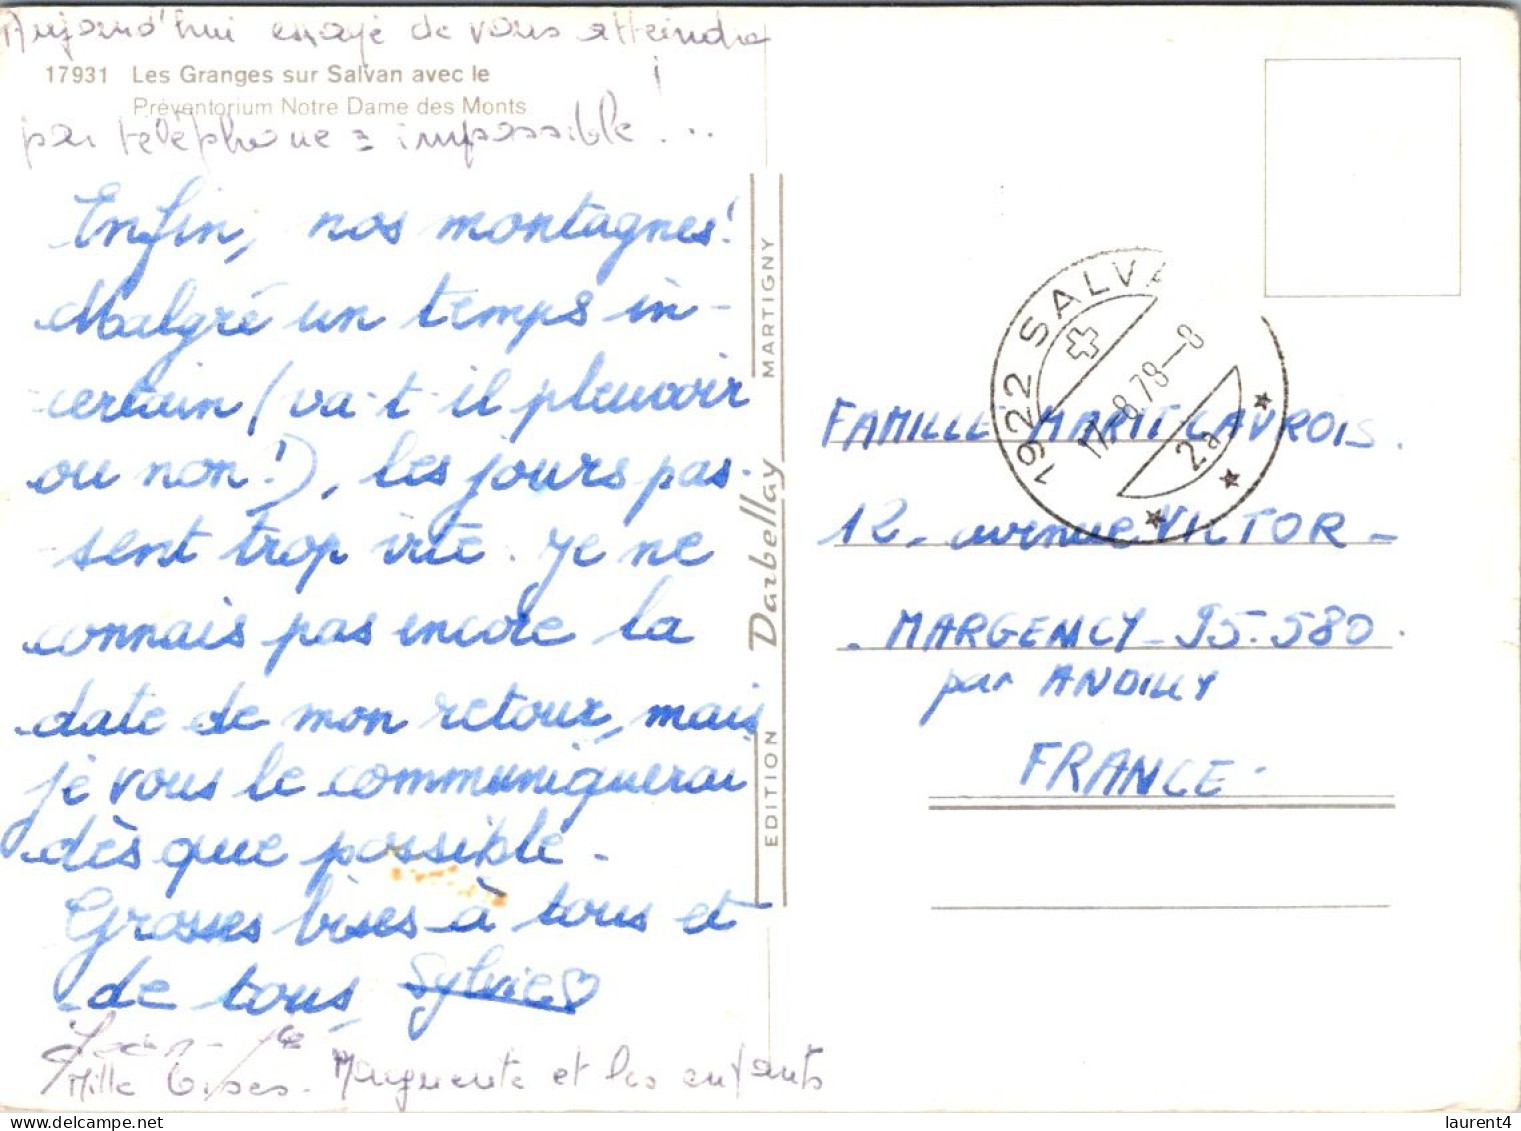 Aujourd'hui essayé de vous atteindre
17931 Les Granges sur Salvan avec le
Préventorium Notre Dame des Monts
par téléphone = impossible!...
Enfin, nos montagnes!
Malgré un temps in-
certain (va-t-il pleuvoir
ou non!), les jours pas-
sent trop vite. Je ne
connais pas encore la
date de mon retour, mais
je vous le communiquerai
dès que possible.
Grosses bises à tous et
de tous, Sylvie♡
Mille bises. Marguerite et les enfants
EDITION Darbellay MARTIGNY
1922 SALVA
17.8.78-8
2a
FAMILLE MARIT LAVROIS.
12, avenue VICTOR -
- MARGENCY - 95.580.
par ANDILLY
FRANCE -
laurent4